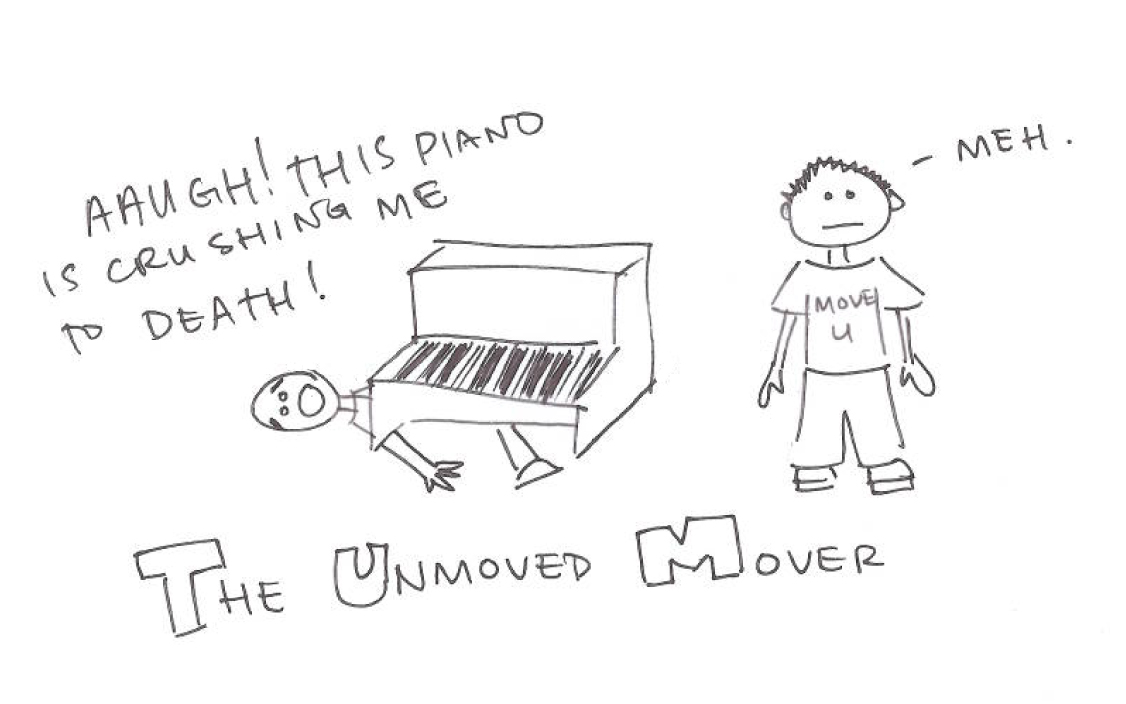 AAUGH! THIS PIANO
IS CRUSHING ME
TO DEATH!
- MEH.
MOVE
U
THE UNMOVED MOVER